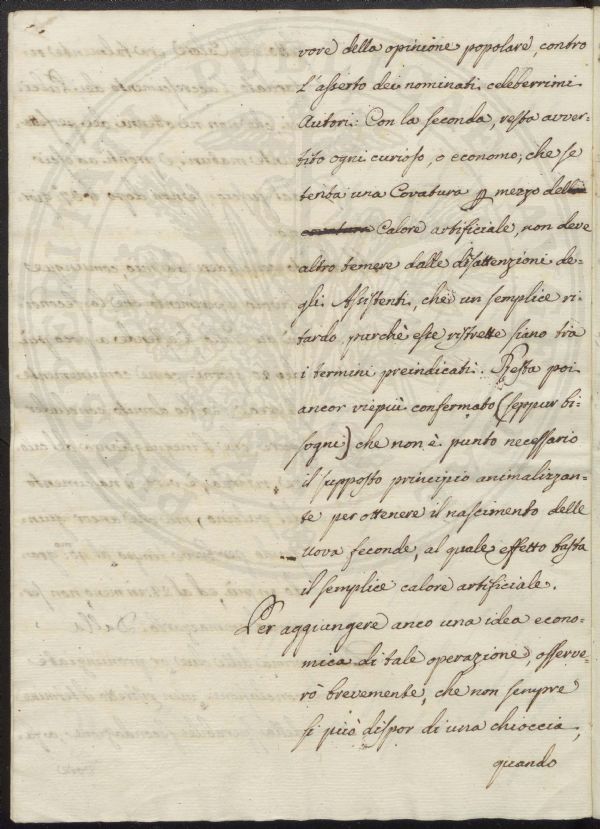 vore della opinione popolare, contro
l'asserto dei nominati celeberrimi
Autori: Con la seconda, resta avver-
tito ogni curioso, o economo, che se
tenta una Covatura p mezzo della
covatura Calore artificiale, non deve
altro temere dalle disattenzioni de-
gli Assistenti, che un semplice ri-
tardo, purchè este ristrette siano tra
i termini preindicati. Resta poi
ancor viepiù confermato (seppur bi-
sogni) che non è punto necessario
il supposto principio animalizzan-
te per ottenere il nascimento delle
Uova feconde, al quale effetto basta
il semplice calore artificiale.
Per aggiungere anco una idea econo-
mica di tale operazione, osserve-
rò brevemente, che non sempre
si può dispor di una chioccia,
quando